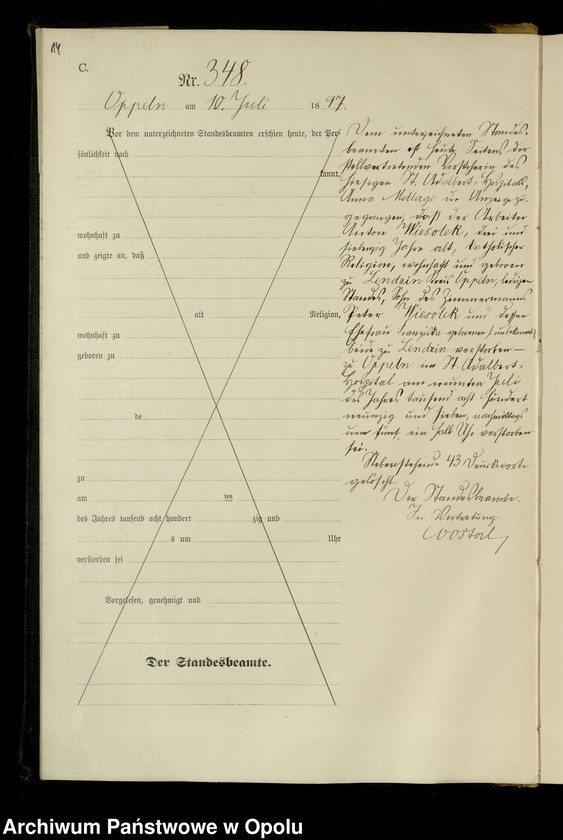 14
C.
Nr. 348.
Oppeln am 10. Juli 1897.
Vor dem unterzeichneten Standesbeamten erschien heute, der Per-
sönlichkeit nach
kannt,
wohnhaft zu
und zeigte an, daß
alt Religion,
wohnhaft zu
geboren zu
de
zu
am ten
des Jahres tausend acht hundert zig und
s um Uhr
verstorben sei
Vorgelesen, genehmigt und
Der Standesbeamte.
Dem unterzeichneten Standes-
beamten ist heute Seitens der
stellvertretenden Vorsteherin des
hiesigen St. Adalbert-Hospitals,
Anna Mellage die Anzeige zu-
gegangen, daß der Arbeiter
Anton Wiesolek, drei und
siebenzig Jahre alt, katholischer
Religion, wohnhaft und geboren
zu Lendzin Kreis Oppeln, ledigen
Standes, Sohn des Zimmermanns
Peter Wiesolek und dessen
Ehefrau Franziska geborenen (unbekannt)
beide zu Lendzin verstorben —
zu Oppeln im St. Adalbert-
Hospital am neunten Juli
des Jahres tausend acht hundert
neunzig und sieben, nachmittags
um fünf ein halb Uhr verstorben
sei.
Nebenstehende 43 Druckworte
gelöscht.
Der Standesbeamte.
In Vertretung
Wostal
Archiwum Państwowe w Opolu